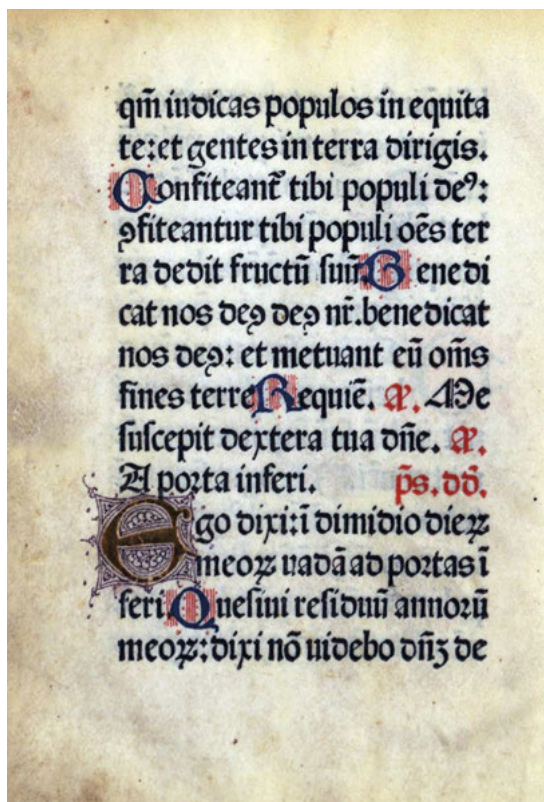 qm̄ iudicas populos in equita
te: et gentes in terra dirigis.
Confiteant᷑ tibi populi de⁹:
ꝯfiteantur tibi populi oēs ter
ra dedit fructū suū. Benedi
cat nos deꝯ deꝯ nr̄. benedicat
nos deꝯ: et metuant eū om̄s
fines terre Requiē. a͞. Me
suscepit dextera tua dn̄e. a͞.
A porta inferi. p̄s. dd̄.
Ego dixi: ī dimidio dieꝝ
meoꝝ uadā ad portas ī
feri. Quesiui residuū annorū
meoꝝ: dixi nō uidebo dn̄ꝫ de